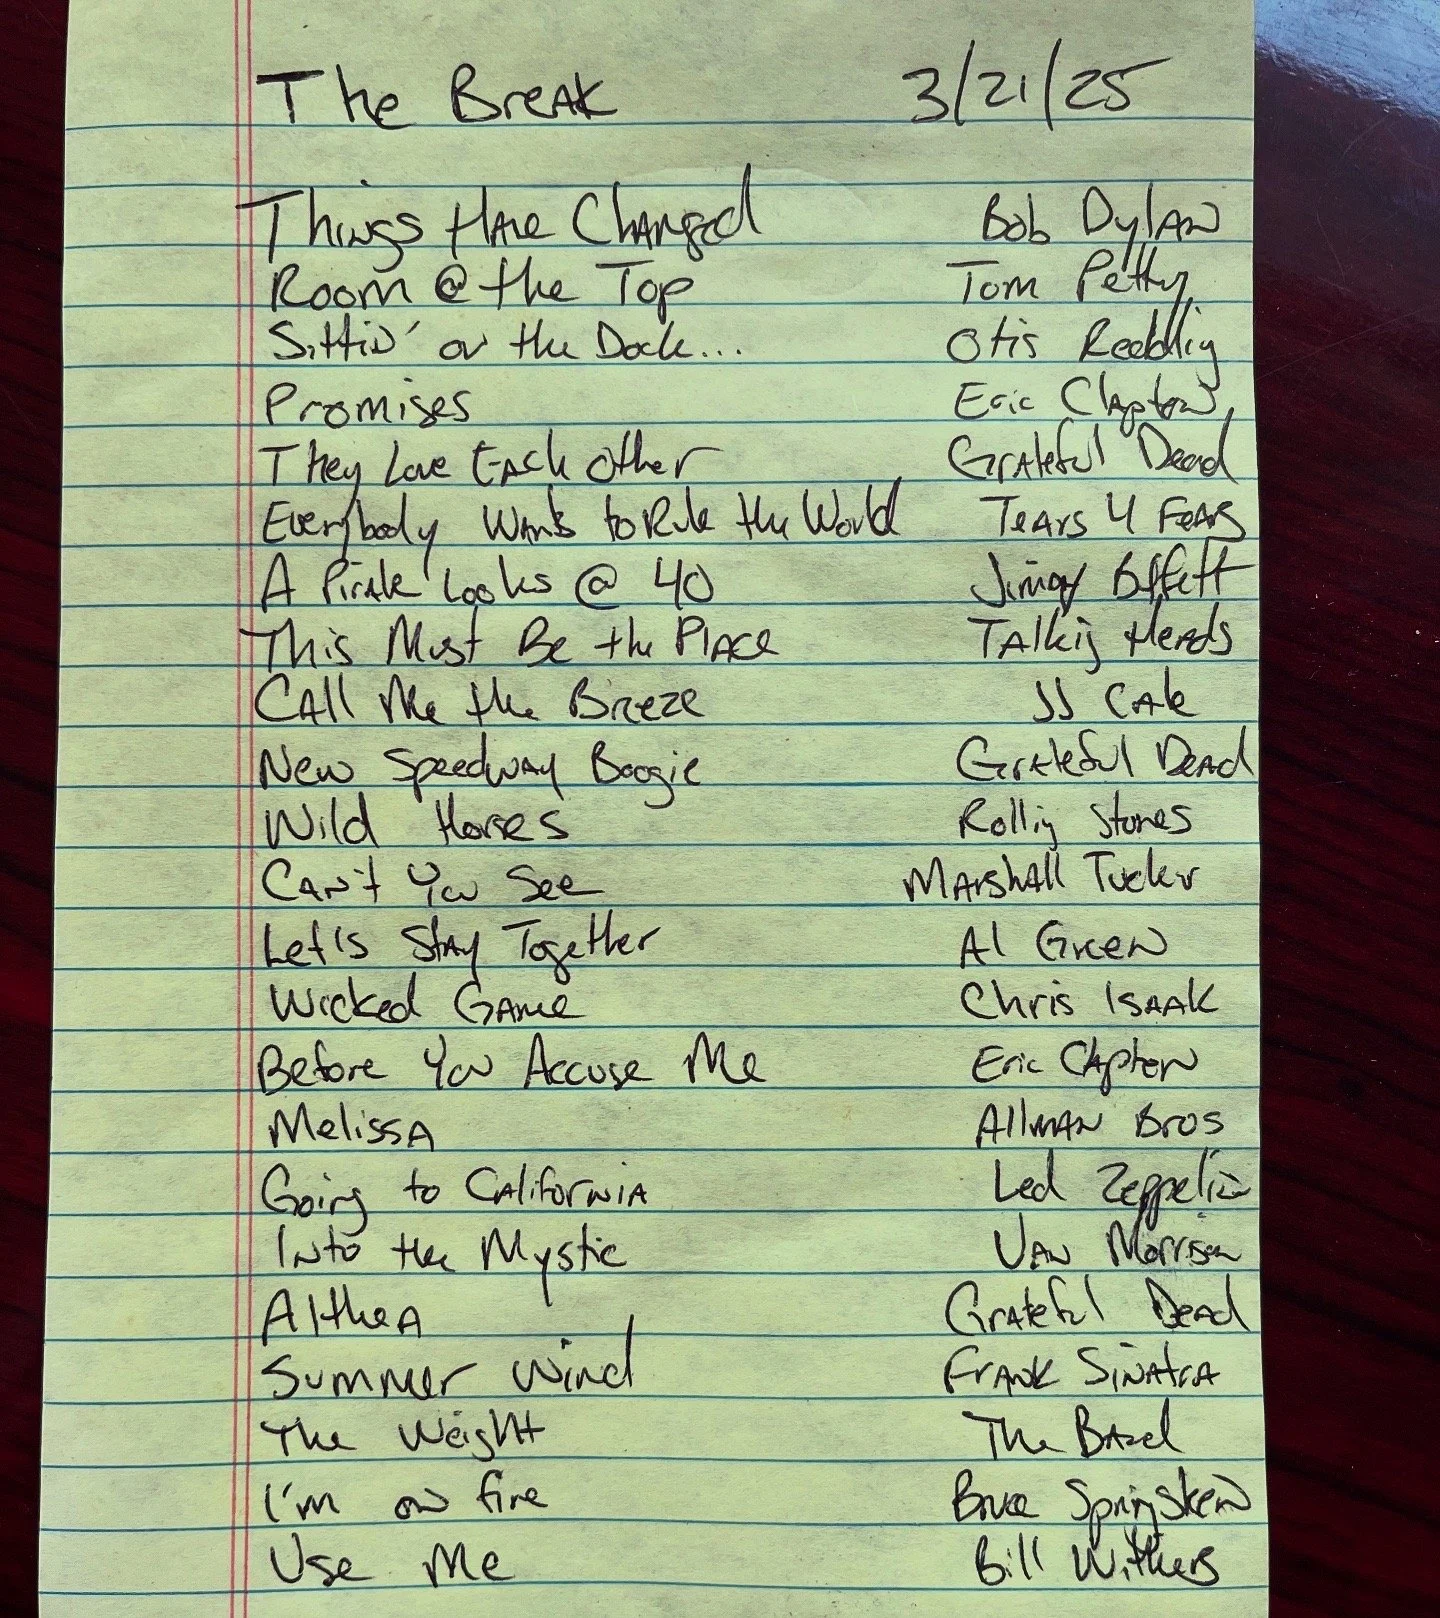 The Break 3/21/25
Things Have Changed Bob Dylan
Room @ the Top Tom Petty
Sittin' on the Dock... Otis Redding
Promises Eric Clapton
They Love Each Other Grateful Dead
Everybody Wants to Rule the World Tears 4 Fears
A Pirate Looks @ 40 Jimmy Buffett
This Must Be the Place Talking Heads
Call Me the Breeze JJ Cale
New Speedway Boogie Grateful Dead
Wild Horses Rolling Stones
Can't You See Marshall Tucker
Let's Stay Together Al Green
Wicked Game Chris Isaak
Before You Accuse Me Eric Clapton
Melissa Allman Bros
Going to California Led Zeppelin
Into the Mystic Van Morrison
Althea Grateful Dead
Summer Wind Frank Sinatra
The Weight The Band
I'm on fire Bruce Springsteen
Use Me Bill Withers